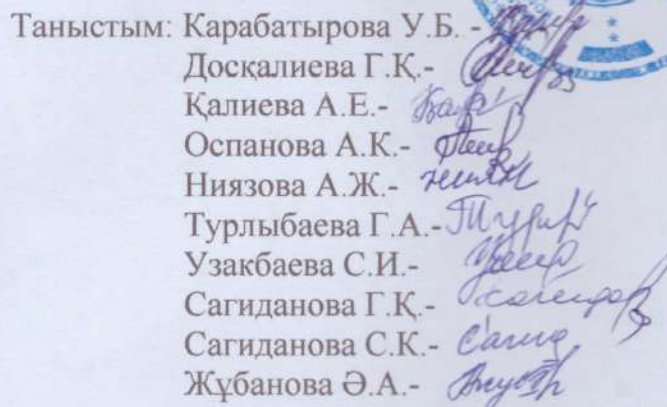 Таныстым: Карабатырова У.Б. -
Досқалиева Г.Қ.-
Қалиева А.Е.-
Оспанова А.К.-
Ниязова А.Ж.-
Турлыбаева Г.А.-
Узакбаева С.И.-
Сагиданова Г.Қ.-
Сагиданова С.К.-
Жұбанова Ә.А.-